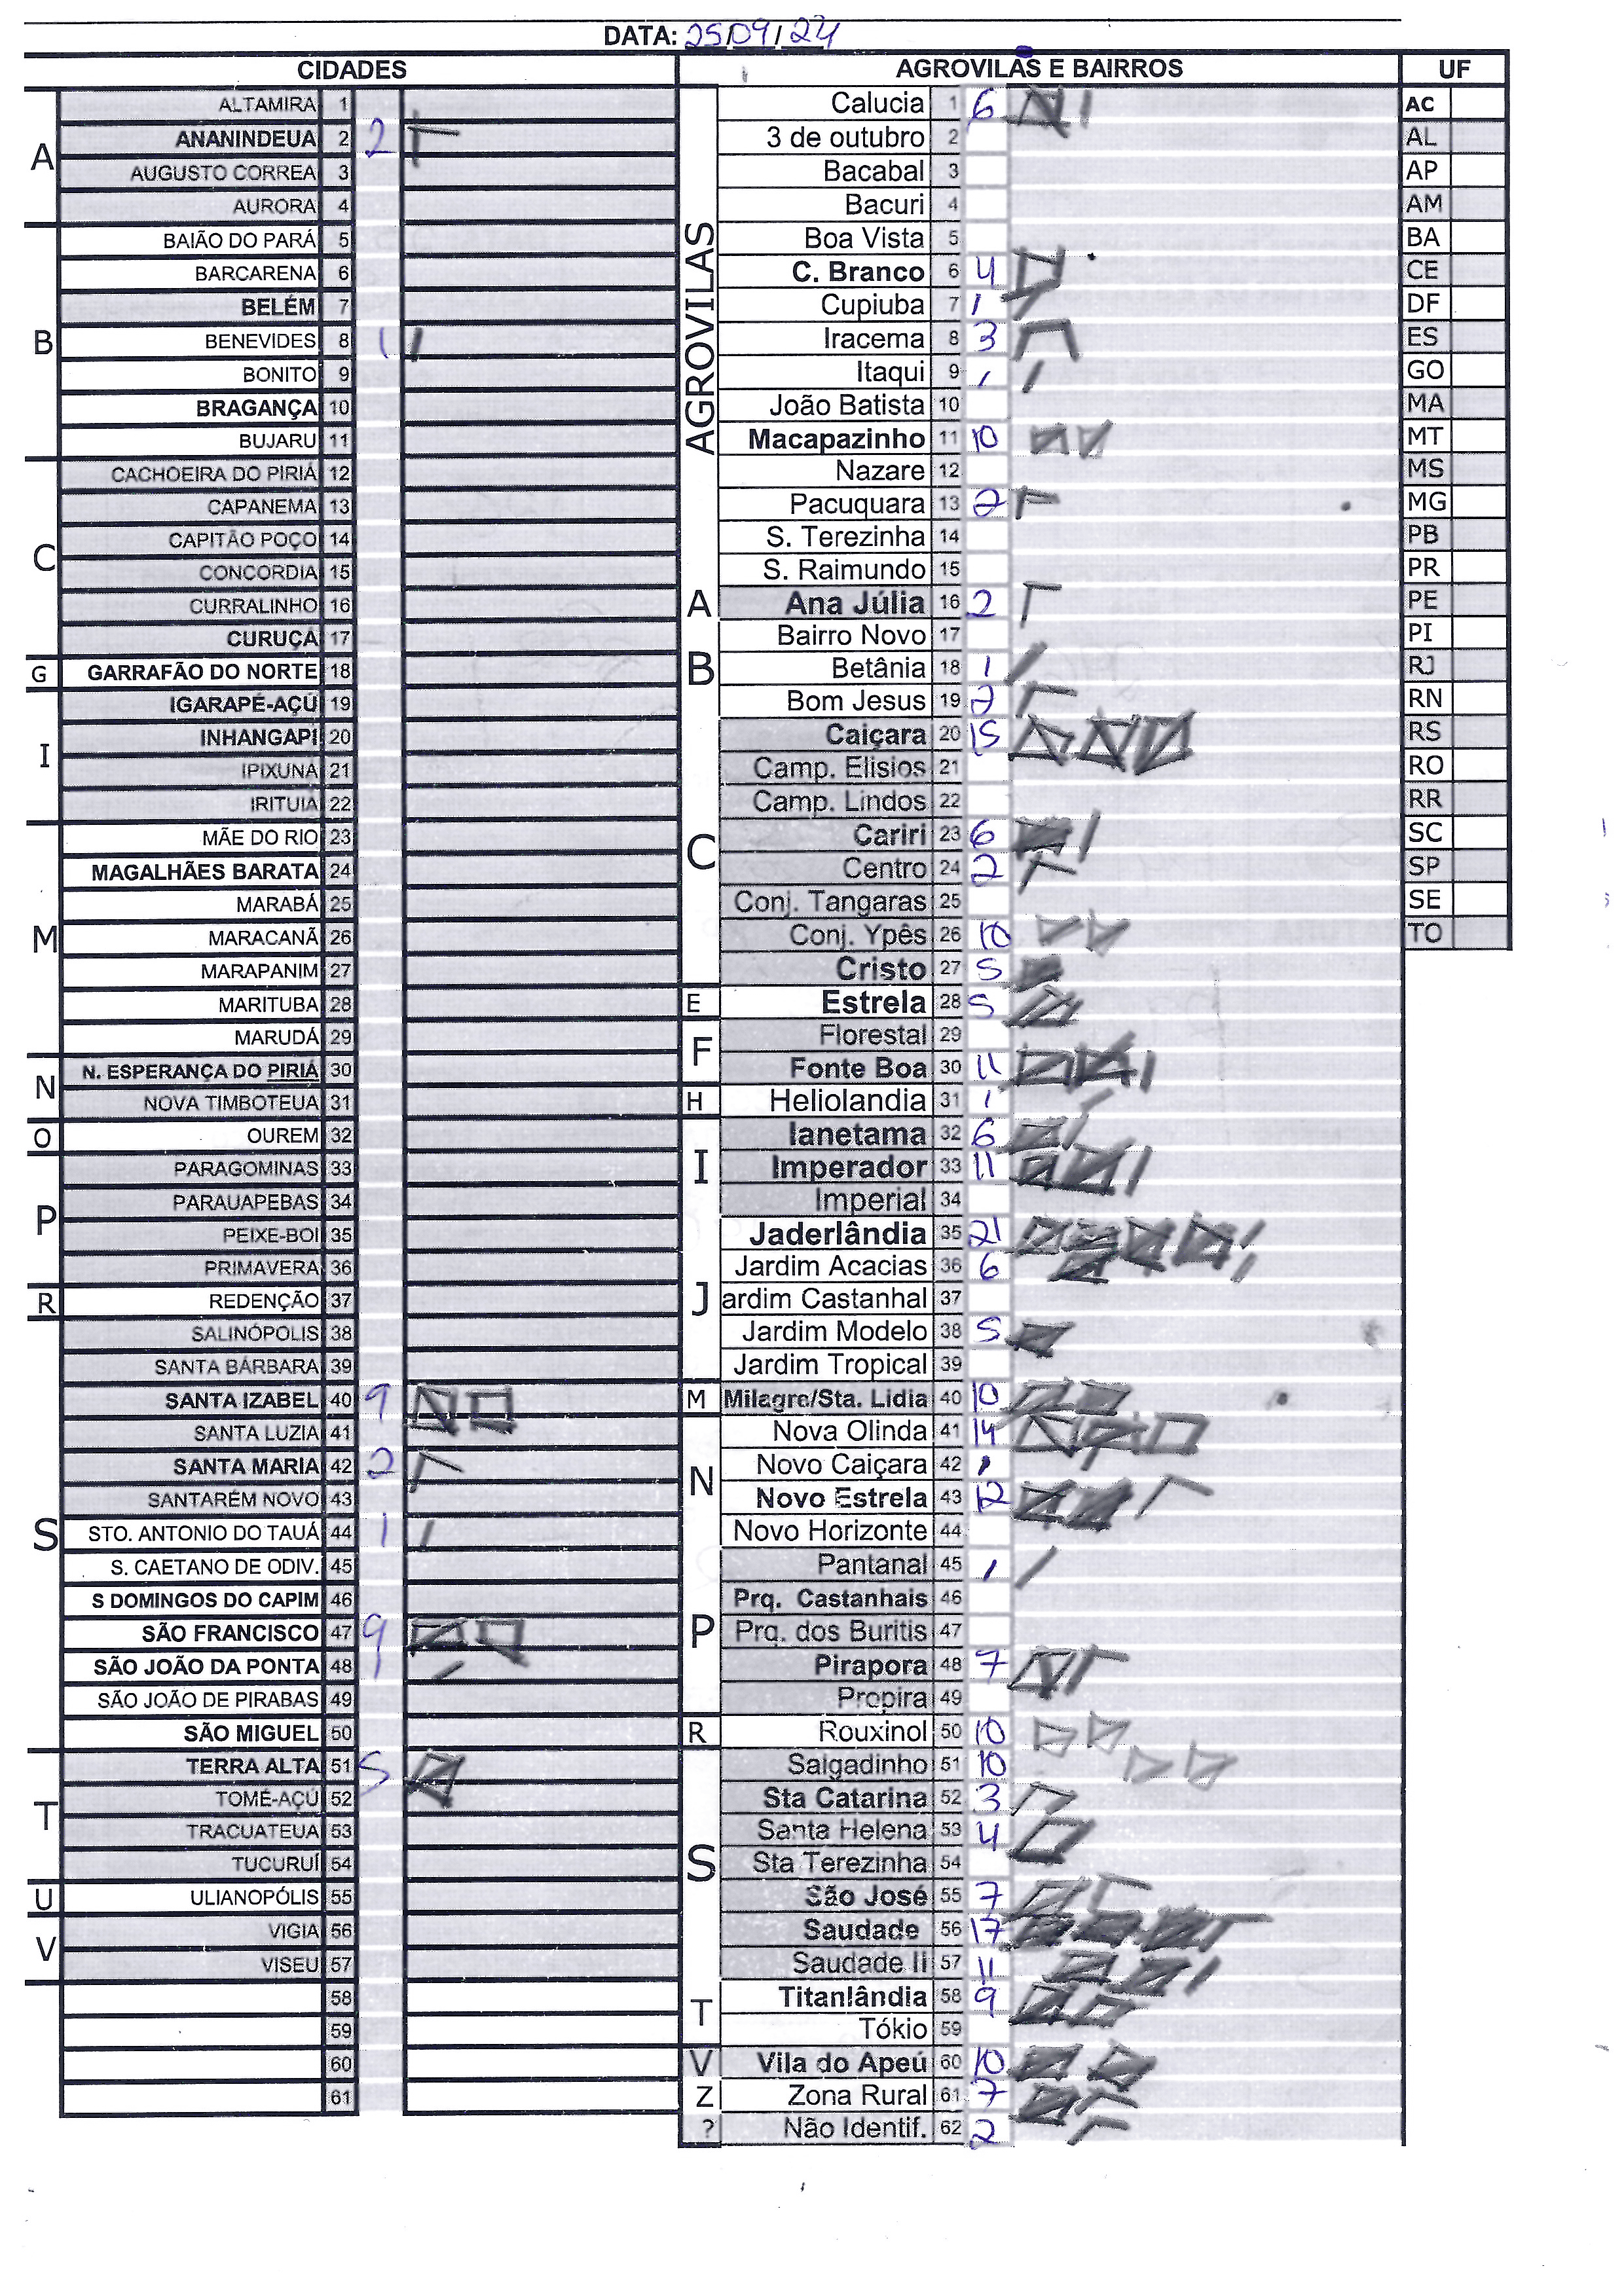 DATA: 25/09/24
CIDADES
A
ALTAMIRA 1
ANANINDEUA 2 2
AUGUSTO CORREA 3
AURORA 4
B
BAIÃO DO PARÁ 5
BARCARENA 6
BELÉM 7
BENEVIDES 8 1
BONITO 9
BRAGANÇA 10
BUJARU 11
C
CACHOEIRA DO PIRIÁ 12
CAPANEMA 13
CAPITÃO POÇO 14
CONCORDIA 15
CURRALINHO 16
CURUÇA 17
G
GARRAFÃO DO NORTE 18
I
IGARAPÉ-AÇÚ 19
INHANGAPI 20
IPIXUNA 21
IRITUIA 22
M
MÃE DO RIO 23
MAGALHÃES BARATA 24
MARABÁ 25
MARACANÃ 26
MARAPANIM 27
MARITUBA 28
MARUDÁ 29
N
N. ESPERANÇA DO PIRIÁ 30
NOVA TIMBOTEUA 31
O
OUREM 32
P
PARAGOMINAS 33
PARAUAPEBAS 34
PEIXE-BOI 35
PRIMAVERA 36
R
REDENÇÃO 37
S
SALINÓPOLIS 38
SANTA BÁRBARA 39
SANTA IZABEL 40 9
SANTA LUZIA 41
SANTA MARIA 42 2
SANTARÉM NOVO 43
STO. ANTONIO DO TAUÁ 44 1
S. CAETANO DE ODIV. 45
S DOMINGOS DO CAPIM 46
SÃO FRANCISCO 47 9
SÃO JOÃO DA PONTA 48 1
SÃO JOÃO DE PIRABAS 49
SÃO MIGUEL 50
T
TERRA ALTA 51 5
TOMÉ-AÇÚ 52
TRACUATEUA 53
TUCURUÍ 54
U
ULIANOPÓLIS 55
V
VIGIA 56
VISEU 57
58
59
60
61
AGROVILAS E BAIRROS
AGROVILAS
Calucia 1 6
3 de outubro 2
Bacabal 3
Bacuri 4
Boa Vista 5
C. Branco 6 4
Cupiuba 7 1
Iracema 8 3
Itaqui 9 1
João Batista 10
Macapazinho 11 10
Nazare 12
Pacuquara 13 2
S. Terezinha 14
S. Raimundo 15
A
Ana Júlia 16 2
B
Bairro Novo 17
Betânia 18 1
Bom Jesus 19 2
C
Caiçara 20 15
Camp. Elisios 21
Camp. Lindos 22
Cariri 23 6
Centro 24 2
Conj. Tangaras 25
Conj. Ypês 26 10
Cristo 27 5
E
Estrela 28 5
F
Florestal 29
Fonte Boa 30 11
H
Heliolandia 31 1
I
Ianetama 32 6
Imperador 33 11
Imperial 34
J
Jaderlândia 35 21
Jardim Acacias 36 6
ardim Castanhal 37
Jardim Modelo 38 5
Jardim Tropical 39
M
Milagre/Sta. Lidia 40 10
N
Nova Olinda 41 14
Novo Caiçara 42 1
Novo Estrela 43 12
Novo Horizonte 44
P
Pantanal 45 1
Prq. Castanhais 46
Prq. dos Buritis 47
Pirapora 48 7
Propira 49
R
Rouxinol 50 10
S
Salgadinho 51 10
Sta Catarina 52 3
Santa Helena 53 4
Sta Terezinha 54
São José 55 7
Saudade 56 17
Saudade II 57 11
T
Titanlândia 58 9
Tókio 59
V
Vila do Apeú 60 10
Z
Zona Rural 61 7
?
Não Identif. 62 2
UF
AC
AL
AP
AM
BA
CE
DF
ES
GO
MA
MT
MS
MG
PB
PR
PE
PI
RJ
RN
RS
RO
RR
SC
SP
SE
TO